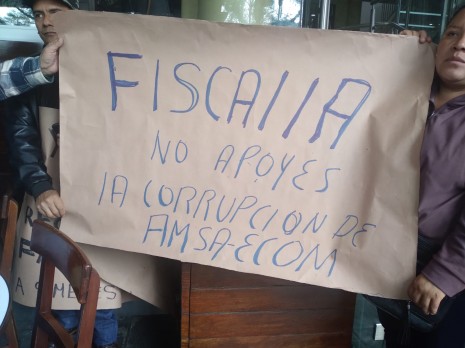 FISCAllA
NO APOYES
lA CORRUPCION DE
AMSA-ECOM